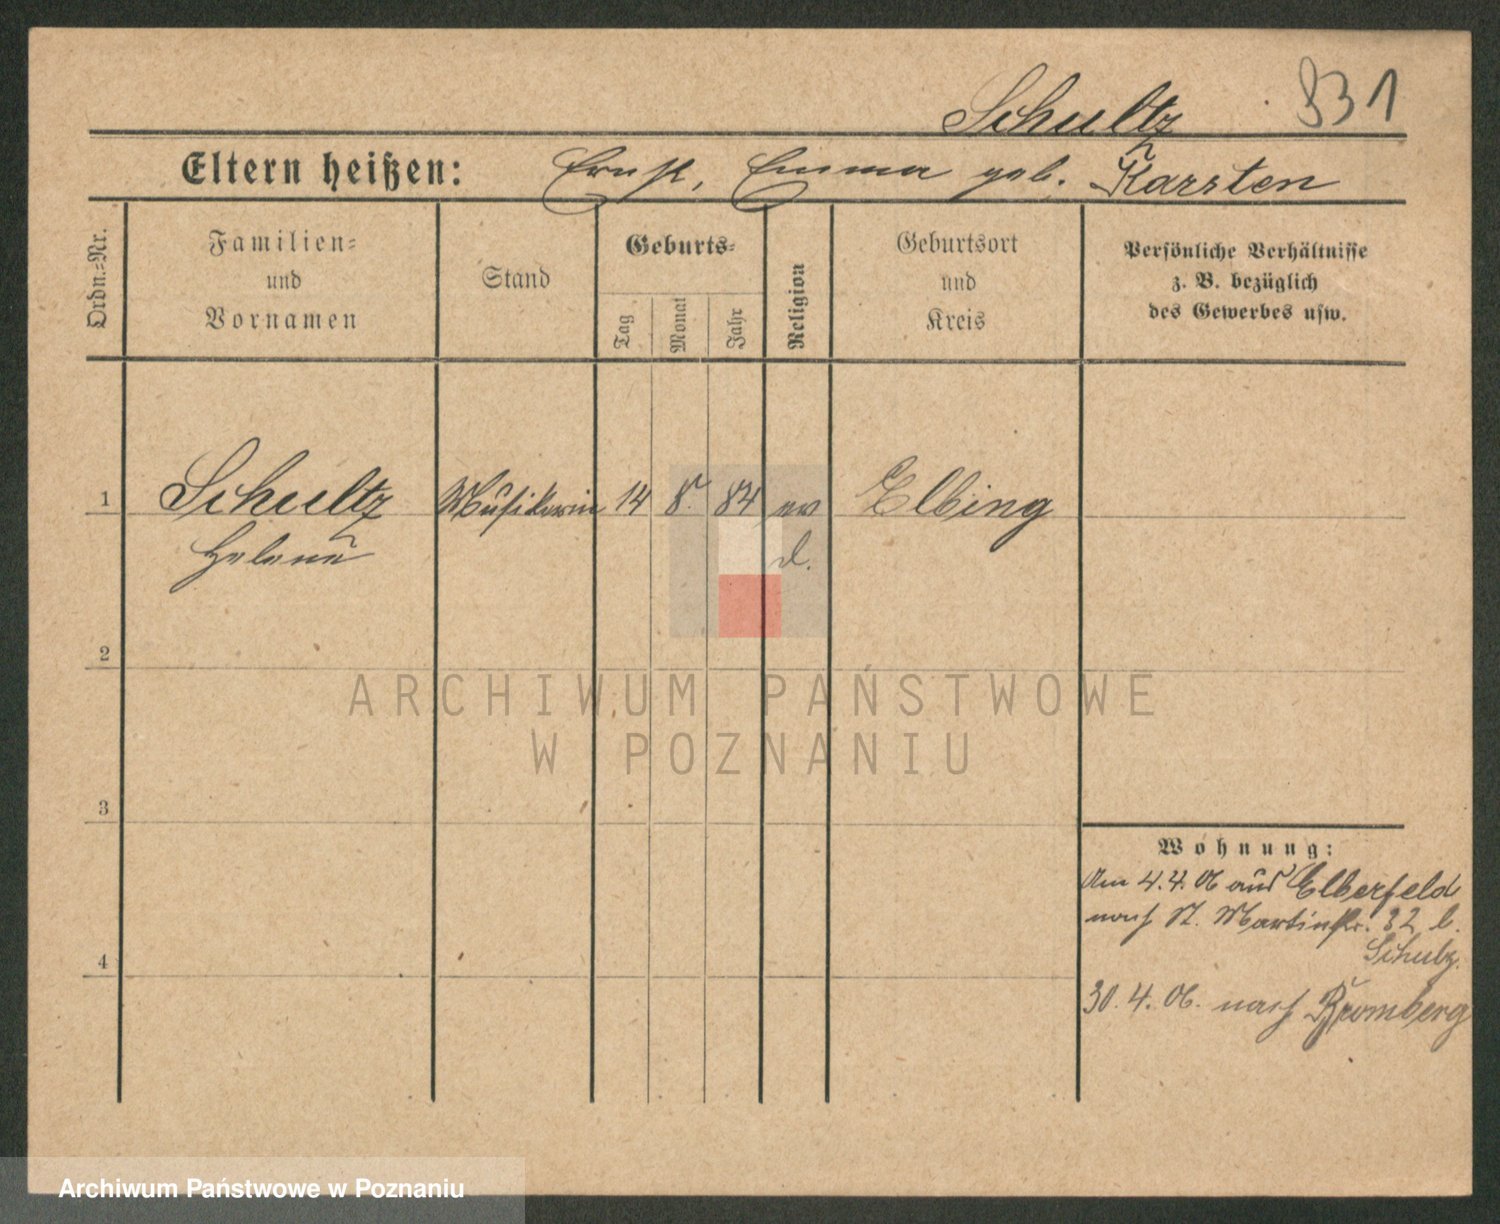 Schultz 931
Eltern heißen: Ernst, Emma geb. Karsten
Ordn.=Nr.
Familien=
und
Vornamen
Stand
Geburts=
Tag
Monat
Jahr
Religion
Geburtsort
und
Kreis
Persönliche Verhältnisse
z. B. bezüglich
des Gewerbes usw.
1 Schultz Musikerin 14 8. 84 ev Elbing
Helene d.
2
ARCHIWUM PAŃSTWOWE
W POZNANIU
3
Wohnung:
Am 4.4.06 aus Elberfeld
nach St. Martinstr. 32 b.
Schulz.
4
30.4.06. nach Bromberg
Archiwum Państwowe w Poznaniu